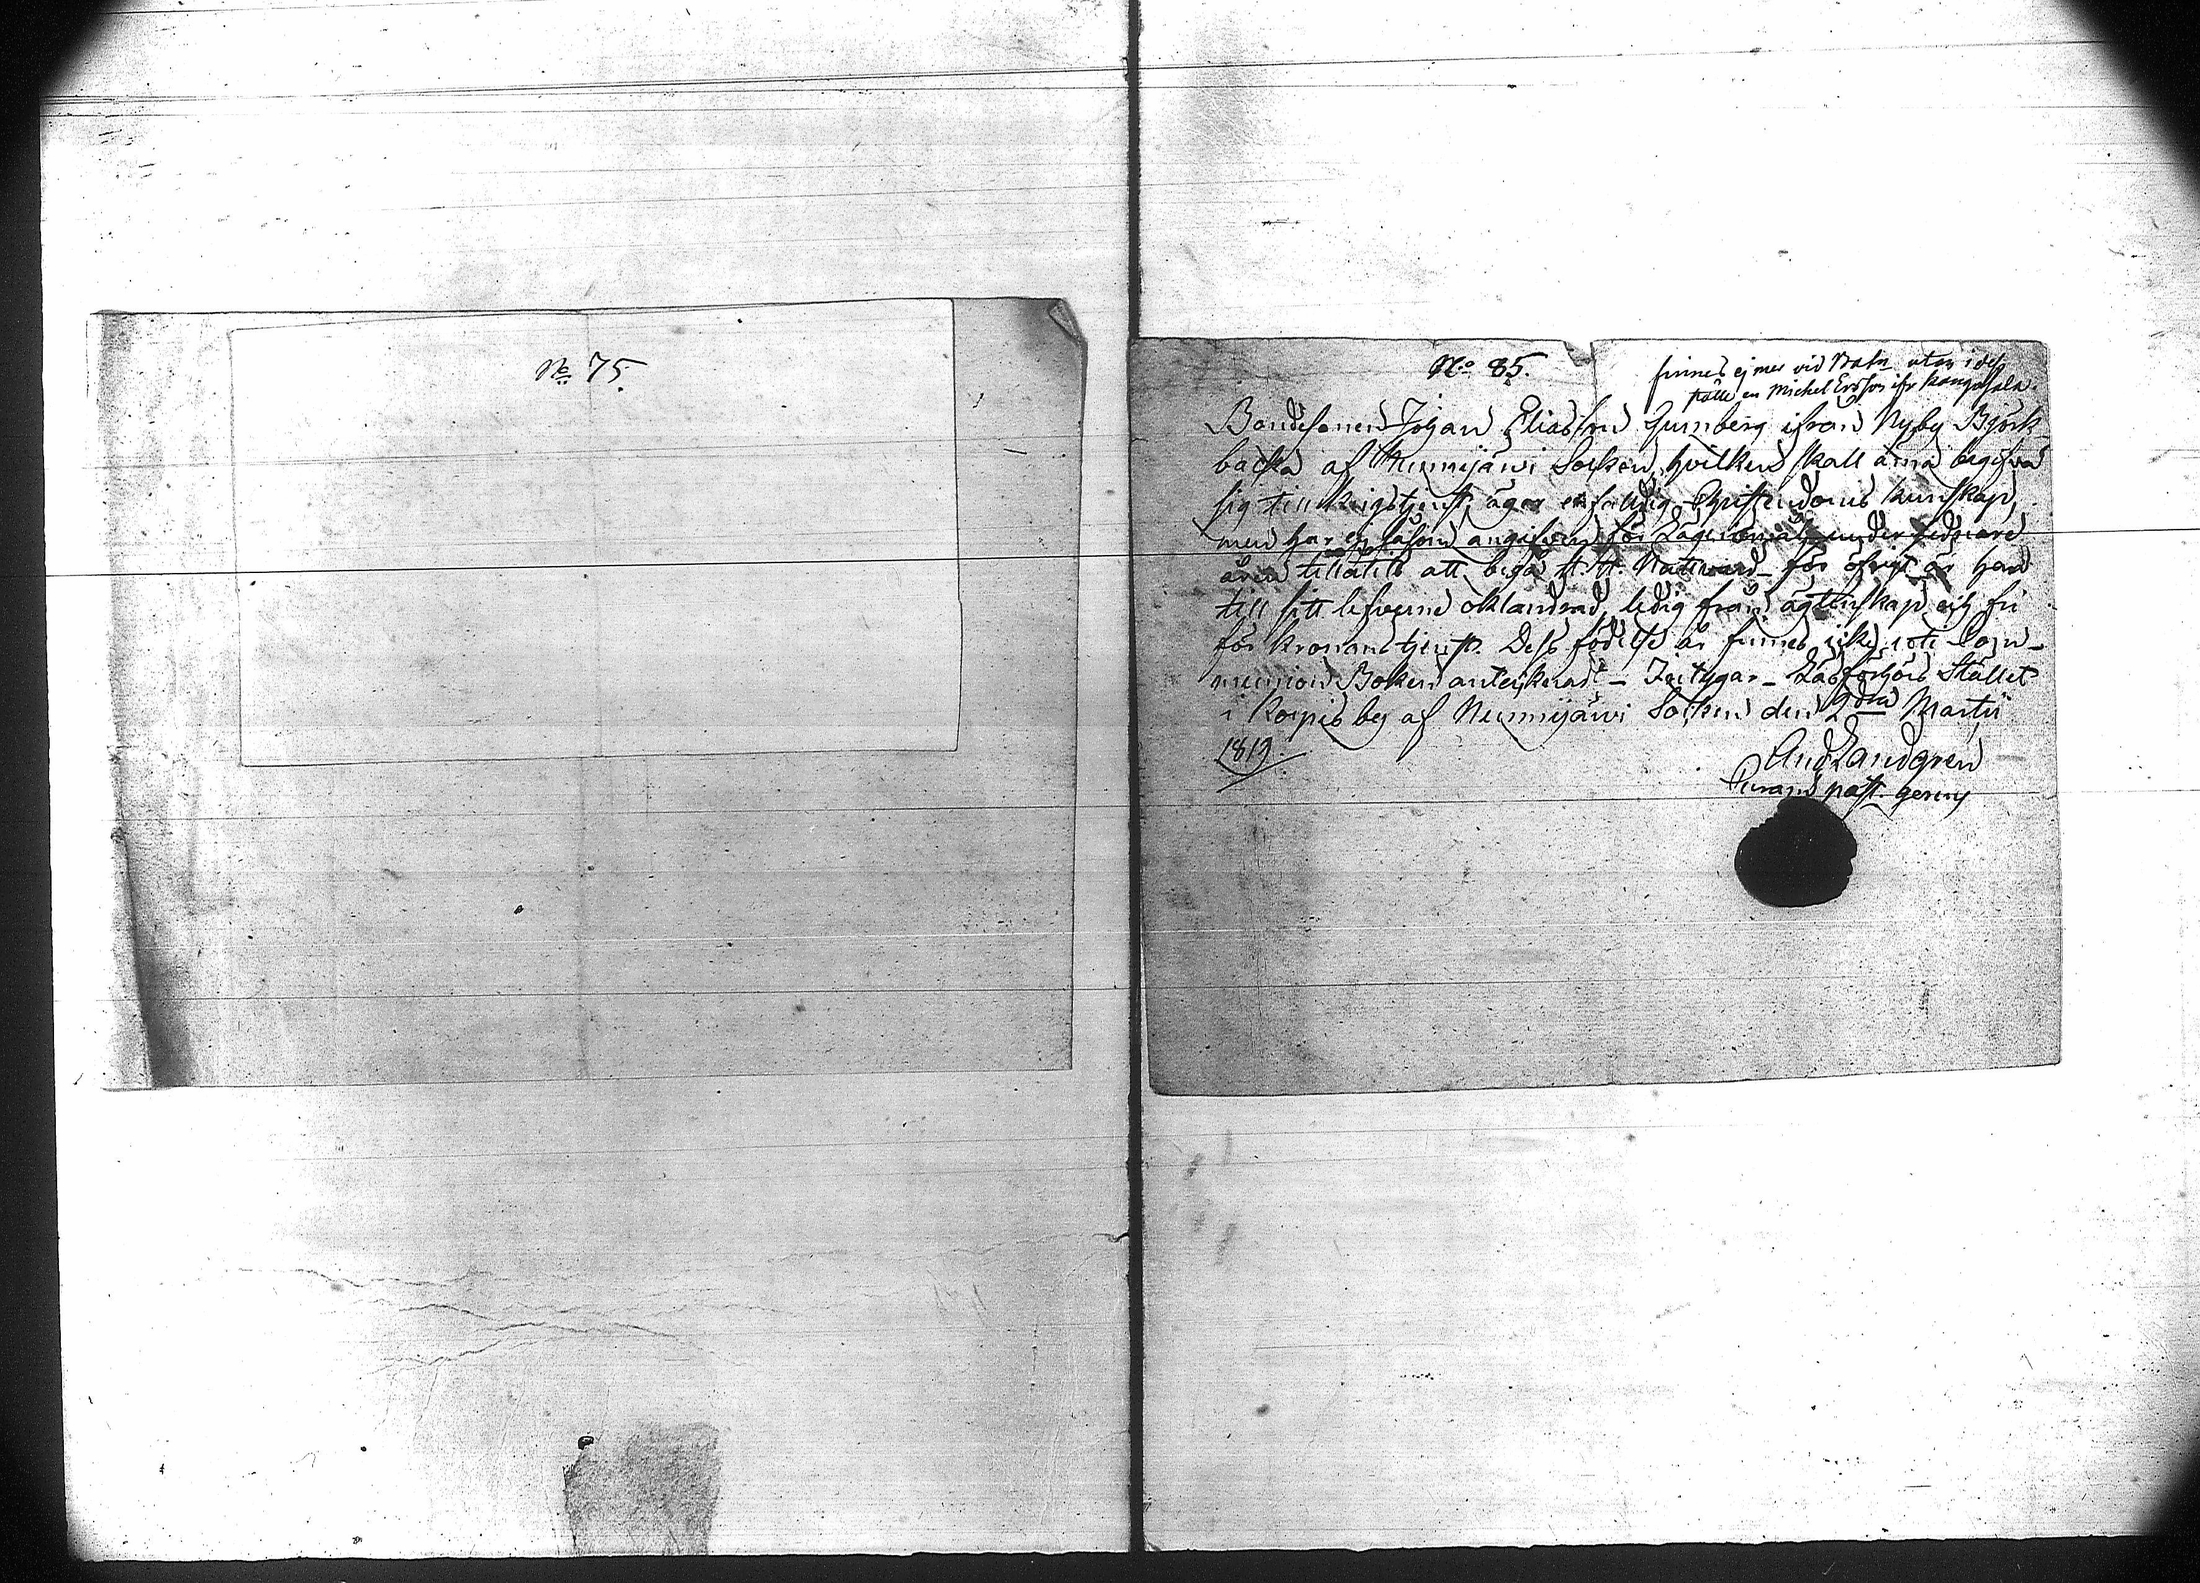 No 75.
No 85.
finnes ej mer vid utan i dess
ställe en Michel Ersson ifr Kangasala.
Bondesonen Johan Eliasson Gumberg ifrån Nyby Björk-
backa af Nummijärvi Socken, hvilken skall ärna begifva
sig till krigstjenst, äger enfaldig Christendoms kunskap,
men har ej såsom angifven för Lägersmål under sednare
åren tillåtits att begå H. H. Nattward för öfrigt är han
till sitt lefverne oklandrad, ledig från ägtenskap och fri
för Kronans tjenst. Dess födelse år finnes icke uti Com-
munion Boken anteiknadt – Intygar – Läsförhörs Stället
i Korpis by af Nummijärvi Socken den 9den Martii
1819.
And Landgren
past.